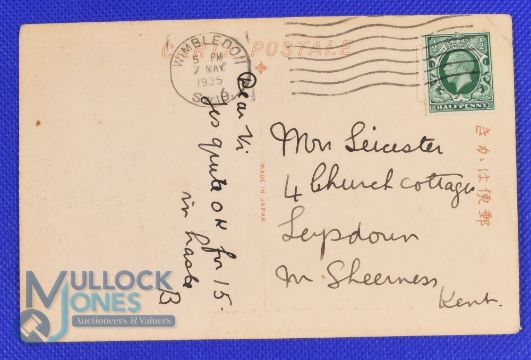 CARTE POSTALE
WIMBLEDON
5 PM
7 MAY
1935
S.W.19
HALFPENNY
Dear Vi
Yes quite OK for 15.
in haste
B
MADE IN JAPAN
Mrs Leicester
4 Church Cottage
Leysdown
Nr. Sheerness
Kent.
きかは便郵
MULLOCK
JONES
Auctioneers & Valuers